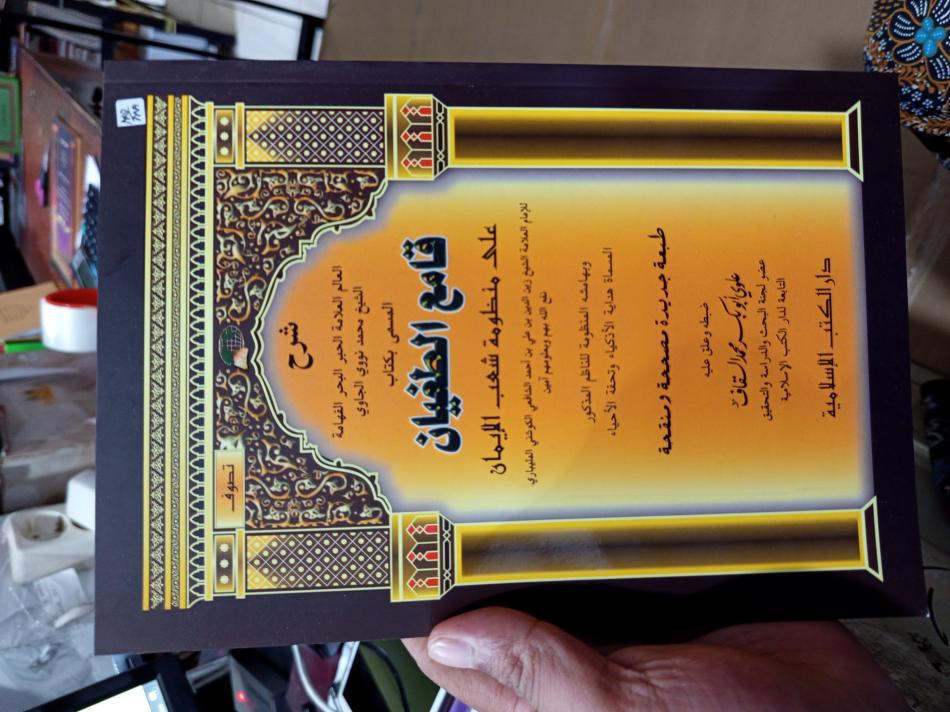 تصوف
شرح
العالم العلامة الحبر البحر الفهامة
الشيخ محمد نووي الجاوي
المسمى بكتاب
قامع الطغيان
على منظومة شعب الإيمان
للإمام العلامة الشيخ زين الدين بن علي بن احمد الشافعي الكوشني المليباري
نفع الله بهم وبعلومهم آمين
وبهامشه المنظومة للناظم المذكور
المسماة هداية الأذكياء وتحفة الأحياء
طبعة جديدة مصححة ومنقحة
ضبطه وعلق عليه
علوي ابوبكر محمد السقاف
عضو لجنة البحث والدراسة والتحقيق
التابعة لدار الكتب الإسلامية
دار الكتب الإسلامية